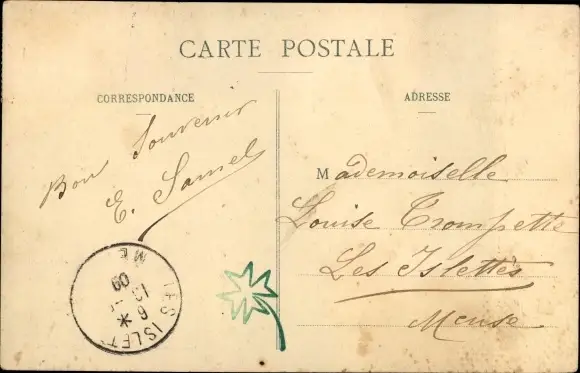 CARTE POSTALE
CORRESPONDANCE
Bon Souvenir
E. Samel
ADRESSE
Mademoiselle
Louise Trompette
Les Islettes
Meuse
LES ISLET
6 *
13
09
ME